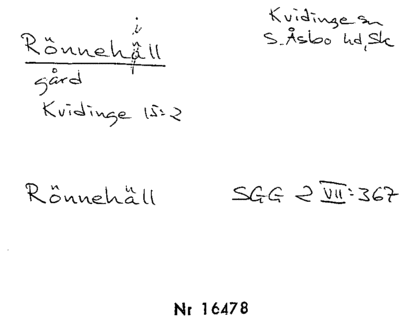 Rönnehäll
Kvidinge sn
S. Åsbo hd, Sk
gård
Kvidinge 15:2
Rönnehäll
SGG 2 VII: 367
Nr 16478